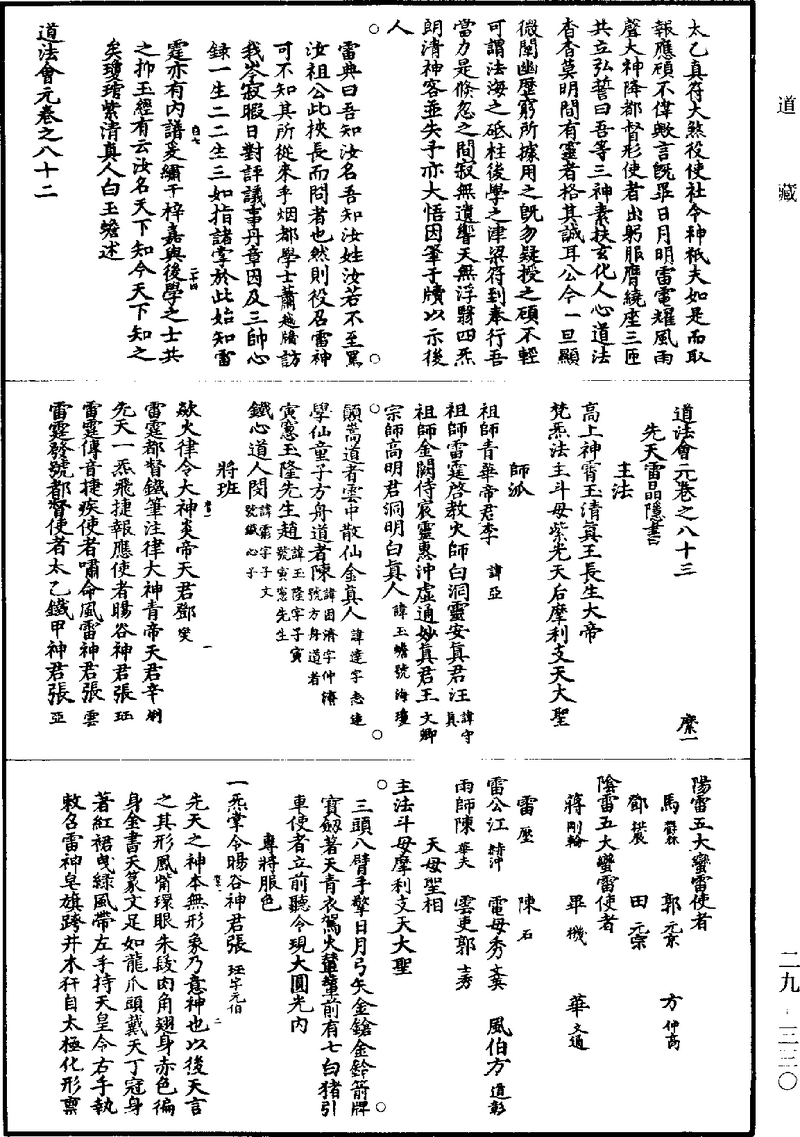 道藏
太乙真符火煞役使社令神祇夫如是而取
報應頑不偉歟言既畢日月明雷電耀風雨
聲大神降都督形使者出躬服膺繞座三匝
共立弘誓曰吾等三神素扶玄化人心道法
杳杳莫明間有靈者格其誠耳公今一旦顯
微闡幽歷窮所據用之既勿疑授之碩不輕
可謂法海之砥柱後學之津梁符到奉行吾
當力是倏忽之間寂無遺響天無浮翳四炁
朗清神客並失予亦大悟因筆于牘以示後
人
雷典曰吾知汝名吾知汝姓汝若不至罵
汝祖公此挾長而問者也然則役召雷神
可不知其所從來乎烟都學士蕭越牎訪
我岑寂暇日對評議事丹章因及三帥心
録一生二二生三如指諸掌於此始知雷
霆亦有内譜爰繡于梓嘉與後學之士共
之抑玉經有云汝名天下知今天下知之
矣瓊琯紫清真人白玉蟾述
道法會元卷之八十二
道法會元卷之八十三 縻一
先天雷晶隱書
主法
高上神霄玉清真王長生大帝
梵炁法主斗母紫光天后摩利支天大聖
師派
祖師青華帝君李 諱亞
祖師雷霆啓教火師白洞靈安真君汪 諱守真
祖師金闕侍宸靈惠沖虛通妙真君王 文卿
宗師高明君洞明白真人 諱玉蟾號海瓊
顯嵩道者雲中散仙金真人 諱達字志達
學仙童子方舟道者陳 諱因濟字仲濟號方舟道者
寅憲玉隆先生趙 諱玉隆字子寅號寅憲先生
鐵心道人閔 諱霱字子文號鐵心子
將班
歘火律令大神炎帝天君鄧 燮
雷霆都督鐵筆注律大神青帝天君辛 翊
先天一炁飛捷報應使者暘谷神君張 珏
雷霆傳音捷疾使者嘯命風雷神君張 雲
雷霆發號都督使者太乙鐵甲神君張 亞
陽雷五大蠻雷使者
馬 鬱林 郭 元京 方 仲高
鄧 拱辰 田 元宗
陰雷五大蠻雷使者
蔣 剛輪 畢 機 華 文通
雷 壓 陳 石
雷公江 赫沖 電母秀 文英 風伯方 道彰
雨師陳 華夫 雲吏郭 士秀
天母聖相
主法斗母摩利支天大聖
三頭八臂手擎日月弓矢金鎗金鈴箭牌
寶劒著天青衣駕火輦輦前有七白猪引
車使者立前聽令現大圓光内
專將服色
一炁掌令暘谷神君張 珏字元伯
先天之神本無形象乃意神也以後天言
之其形鳳觜環眼朱髮肉角翅身赤色徧
身金書天篆文足如龍爪頭戴天丁冠身
著紅裙曳緑風帶左手持天皇令右手執
敕召雷神皂旗跨井木犴自太極化形禀
二九 · 三三〇